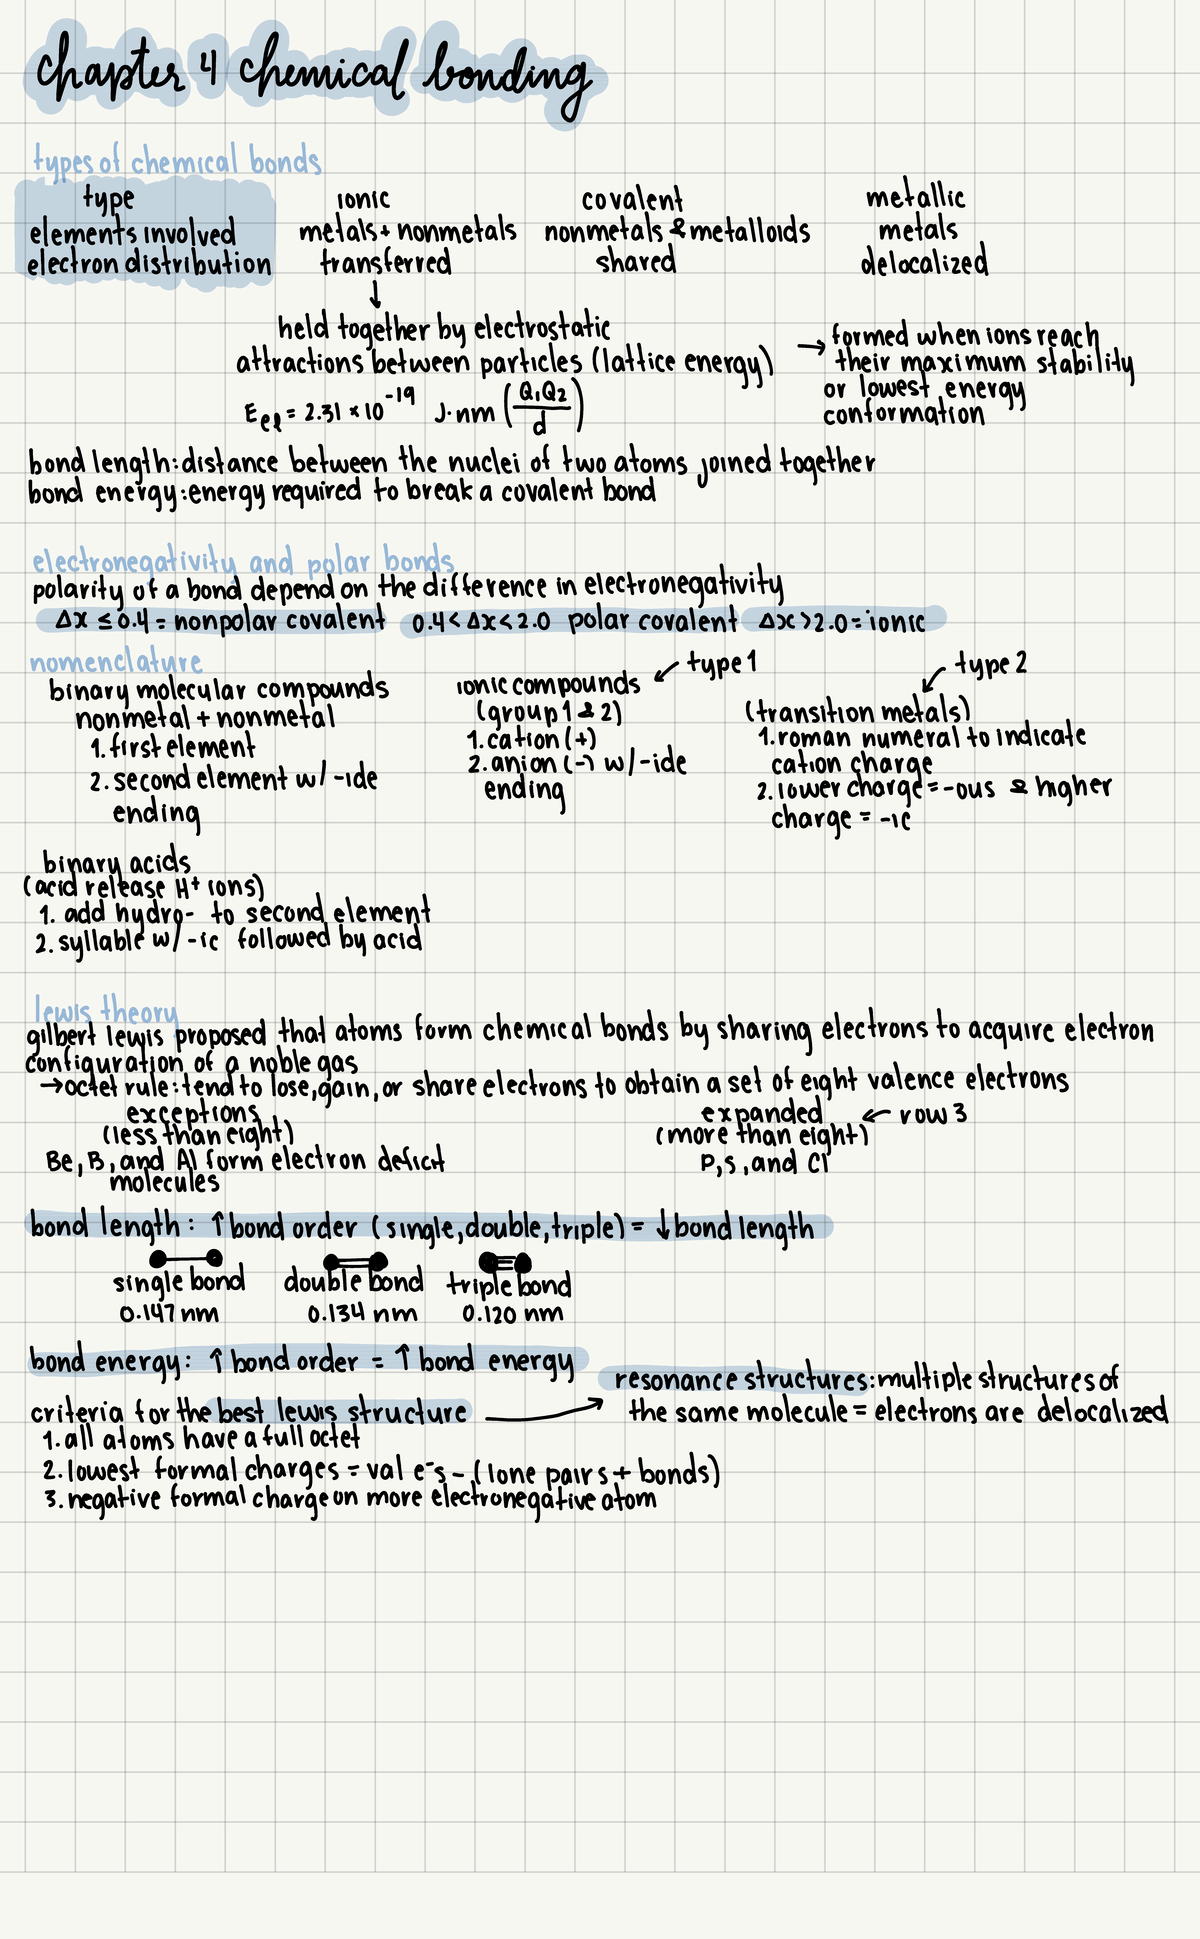 chapter 4 chemical bonding
types of chemical bonds
type ionic covalent metallic
elements involved metals + nonmetals nonmetals & metalloids metals
electron distribution transferred shared delocalized
↓
held together by electrostatic
attractions between particles (lattice energy)
E_el = 2.31 × 10^-19 J·nm (Q₁Q₂/d)
→ formed when ions reach
their maximum stability
or lowest energy
conformation
bond length: distance between the nuclei of two atoms joined together
bond energy: energy required to break a covalent bond
electronegativity and polar bonds
polarity of a bond depend on the difference in electronegativity
Δx ≤ 0.4 = nonpolar covalent 0.4 < Δx < 2.0 polar covalent Δx > 2.0 = ionic
nomenclature
binary molecular compounds
nonmetal + nonmetal
1. first element
2. second element w/ -ide
ending
ionic compounds ↙ type 1
(group 1 & 2)
1. cation (+)
2. anion (-) w/ -ide
ending
↙ type 2
(transition metals)
1. roman numeral to indicate
cation charge
2. lower charge = -ous & higher
charge = -ic
binary acids
(acid release H⁺ ions)
1. add hydro- to second element
2. syllable w/ -ic followed by acid
lewis theory
gilbert lewis proposed that atoms form chemical bonds by sharing electrons to acquire electron
configuration of a noble gas
→ octet rule: tend to lose, gain, or share electrons to obtain a set of eight valence electrons
exceptions
(less than eight)
Be, B, and Al form electron deficit
molecules
expanded ← row 3
(more than eight)
P, S, and Cl
bond length: ↑ bond order (single, double, triple) = ↓ bond length
single bond double bond triple bond
0.147 nm 0.134 nm 0.120 nm
bond energy: ↑ bond order = ↑ bond energy
criteria for the best lewis structure →
1. all atoms have a full octet
2. lowest formal charges = val e⁻s - (lone pairs + bonds)
3. negative formal charge on more electronegative atom
resonance structures: multiple structures of
the same molecule = electrons are delocalized